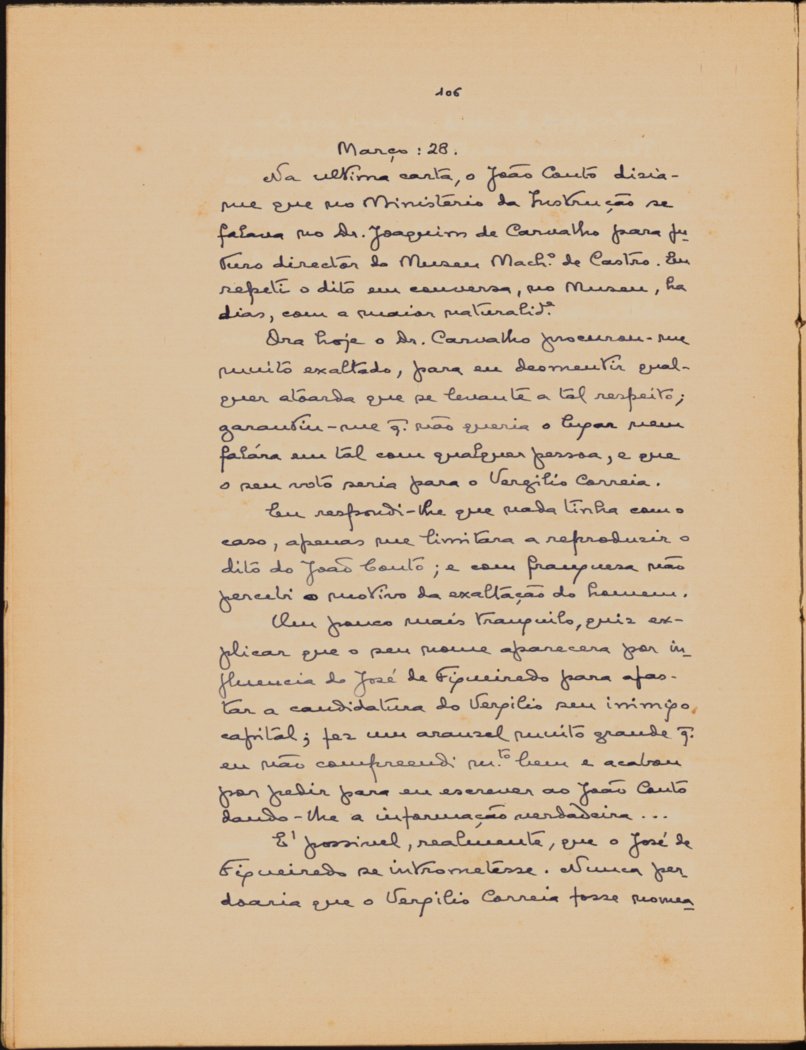 106
Março : 28.
Na ultima carta, o João Couto dizia-
me que no Ministério da Instrução se
falava no Dr. Joaquim de Carvalho para fu-
turo director do Museu Mach.º de Castro. Eu
repeti o dito em conversa, no Museu, ha
dias, com a maior naturalid.ᵉ
Ora hoje o Dr. Carvalho procurou-me
muito exaltado, para eu desmentir qual-
quer atoarda que se levante a tal respeito;
garantiu-me q. não queria o lugar nem
falára em tal com qualquer pessoa, e que
o seu voto seria para o Vergilio Correia.
Eu respondi-lhe que nada tinha com o
caso, apenas me limitara a reproduzir o
dito do João Couto; e com franquesa não
percebi o motivo da exaltação do homem.
Um pouco mais tranquilo, quiz ex-
plicar que o seu nome aparecera por in-
fluencia do José de Figueiredo para afas-
tar a candidatura do Vergilio seu inimigo
capital; fez um arauzel muito grande q.
eu não compreendi m.ᵗᵒ bem e acabou
por pedir para eu escrever ao João Couto
dando-lhe a informação verdàdeira ...
E' possivel, realmente, que o José de
Figueiredo se intrometêsse. Nunca per
doaria que o Vergilio Correia fosse nomea-